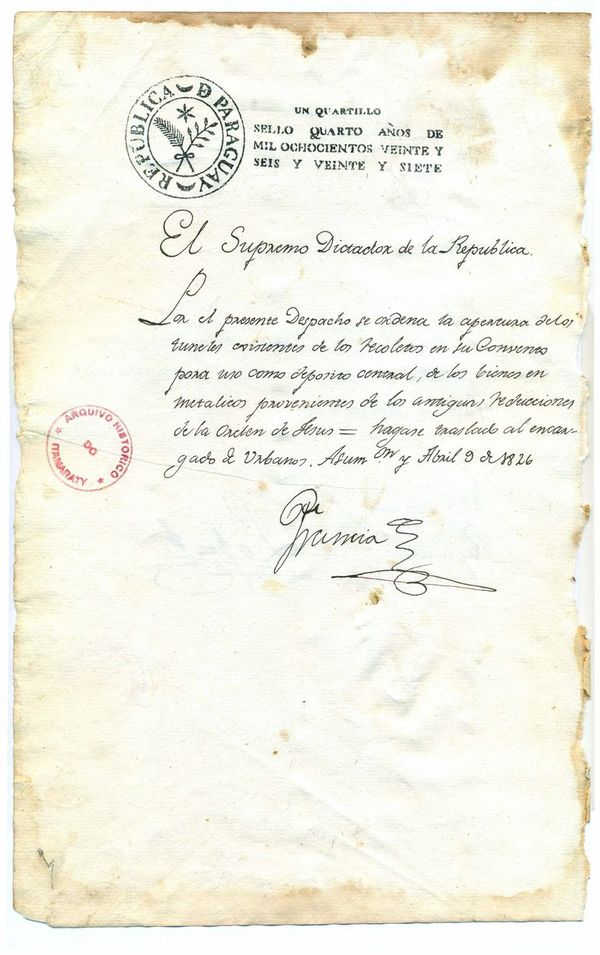 REPUBLICA D PARAGUAY
UN QUARTILLO
SELLO QUARTO AÑOS DE
MIL OCHOCIENTOS VEINTE Y
SEIS Y VEINTE Y SIETE
El Supremo Dictador de la Republica.
Por el presente Despacho se ordena la apertura delos
tuneles existentes de los recoletos en su Convento
para uso como deposito central, de los bienes en
metalicos provenientes de las antiguas reducciones
de la Orden de Jesus = hagase traslado al encar-
gado de Urbanos. Asumon y Abril 9 de 1826
Francia
ARQUIVO HISTORICO
DO
ITAMARATY